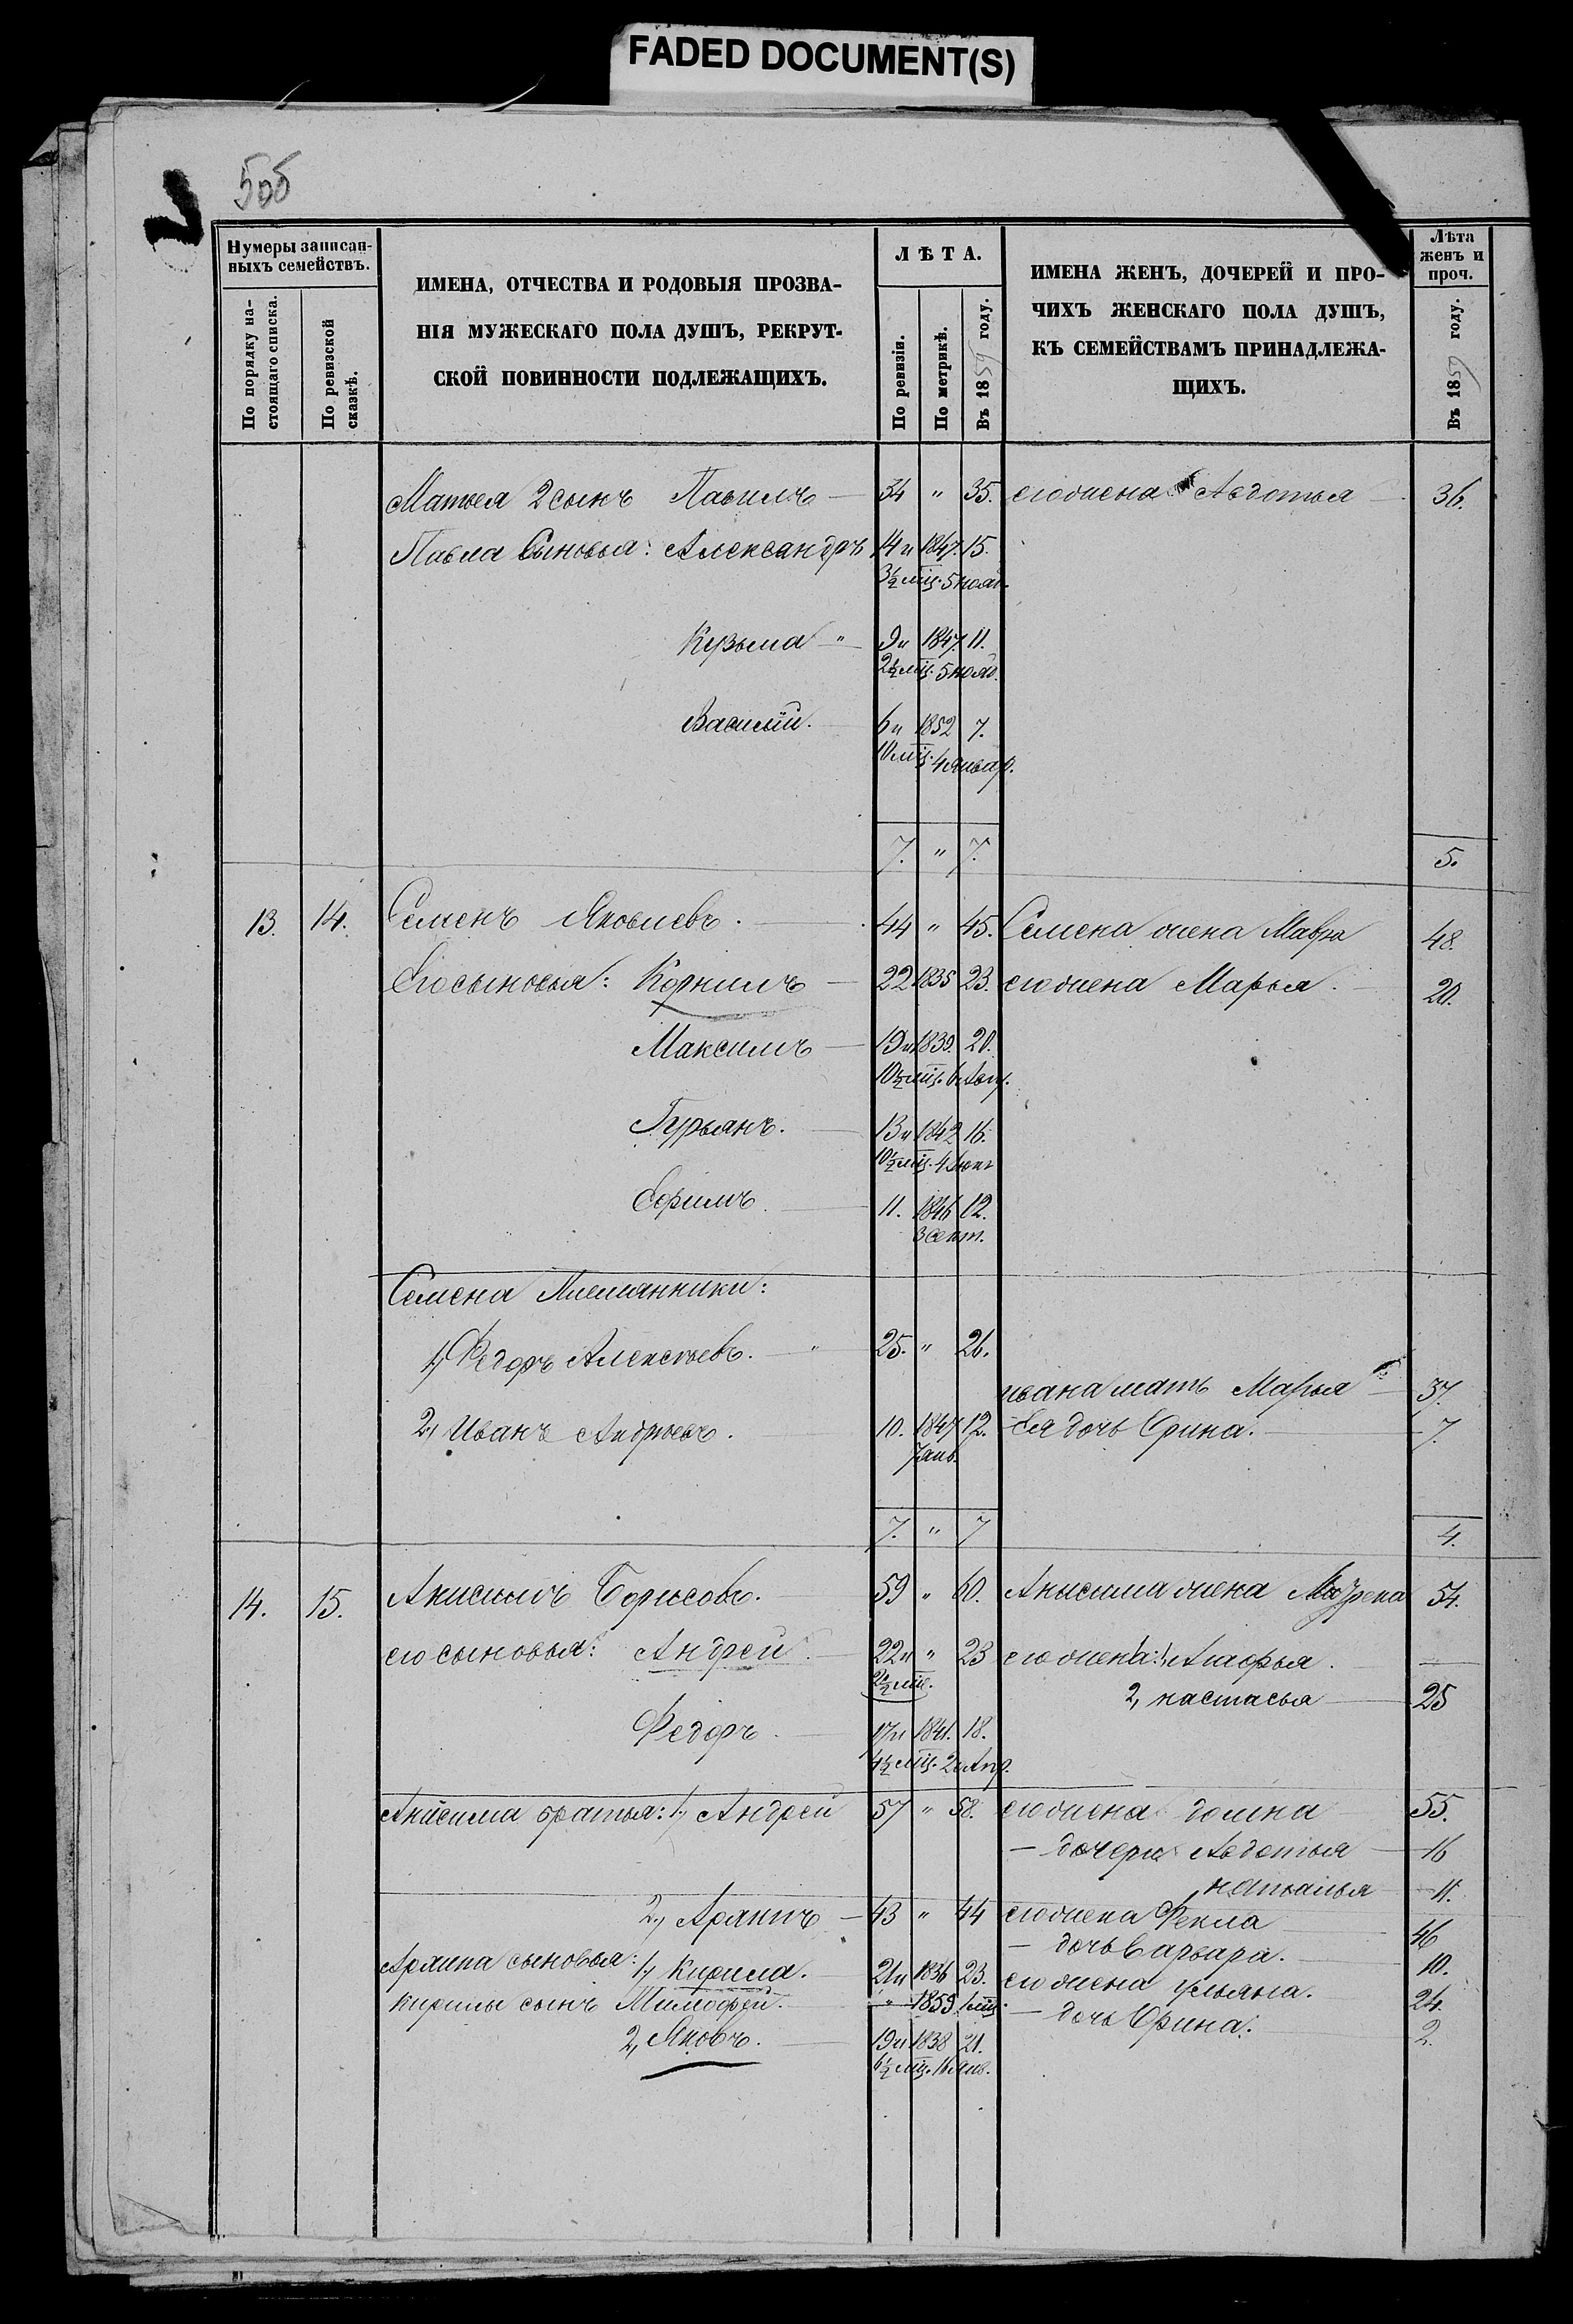 FADED DOCUMENT(S)
505
Нумеры записан-
ныхъ семействъ.
По порядку на-
стоящаго списка.
По ревизской
сказкѣ.
ИМЕНА, ОТЧЕСТВА И РОДОВЫЯ ПРОЗВА-
НІЯ МУЖЕСКАГО ПОЛА ДУШЪ, РЕКРУТ-
СКОЙ ПОВИННОСТИ ПОДЛЕЖАЩИХЪ.
ЛѢТА.
По ревизіи.
По метрикѣ.
Въ 1859 году.
ИМЕНА ЖЕНЪ, ДОЧЕРЕЙ И ПРО-
ЧИХЪ ЖЕНСКАГО ПОЛА ДУШЪ,
КЪ СЕМЕЙСТВАМЪ ПРИНАДЛЕЖА-
ЩИХЪ.
Лѣта
женъ и
проч.
Въ 1859 году.
Матвея 2 сынъ Павилъ 34 " 35. его жена Авдотья 36.
Павла Сыновья: Александръ 14 и 1847. 15.
3½ мѣц. 5 нояб.
Кузьма " 9 и 1847. 11.
2½ мѣц. 5 нояб.
Василій. 6 и 1852 7.
10 мѣц. 4 Январ.
7. " 7. 5.
13. 14. Семенъ Яковлевъ. 44 " 45. Семена жена Мавра 48.
Его сыновья: Корнилъ 22 1835 23. его жена Марья. 20.
Максимъ 19 и 1839. 20.
10½ мѣц. 6 Авг.
Гурьянъ. 13 и 1842 16.
10½ мѣц. 4 Июн
Ефимъ. 11. 1846 12.
3 сент.
Семена Племянники:
1, Федоръ Алексѣевъ. " 25. " 26.
ивана мать Марья 37.
2, Иванъ Андреевъ. 10. 1847 12. Ея дочь Орина. 7.
7 янв.
7. " 7 4.
14. 15. Анисимъ Борисовъ. 59 " 60. Анисима жена Маѳрена 54.
его сыновья: Андрей. 22 и " 23 его жена: 1, Агафья.
2½ мѣц.
2, настасья 25
Федоръ. 17 и 1841. 18.
4½ мѣц. 2 Апр.
Анисима братья: 1, Андрей 57 " 58. его жена домна 55.
дочери Авдотья 16
наталья 11.
2, Архипъ 43 " 44 его жена Фекла 46
дочь Варвара. 10.
Архипа сыновья: 1, Кирила. 21 и 1836 23. его жена ульяна. 24.
Кирилы сынъ Тимофей. " 1859 1 мѣц.
дочь Орина. 2.
2, Яковъ. 19 и 1838 21.
6½ мѣц. 16 Янв.